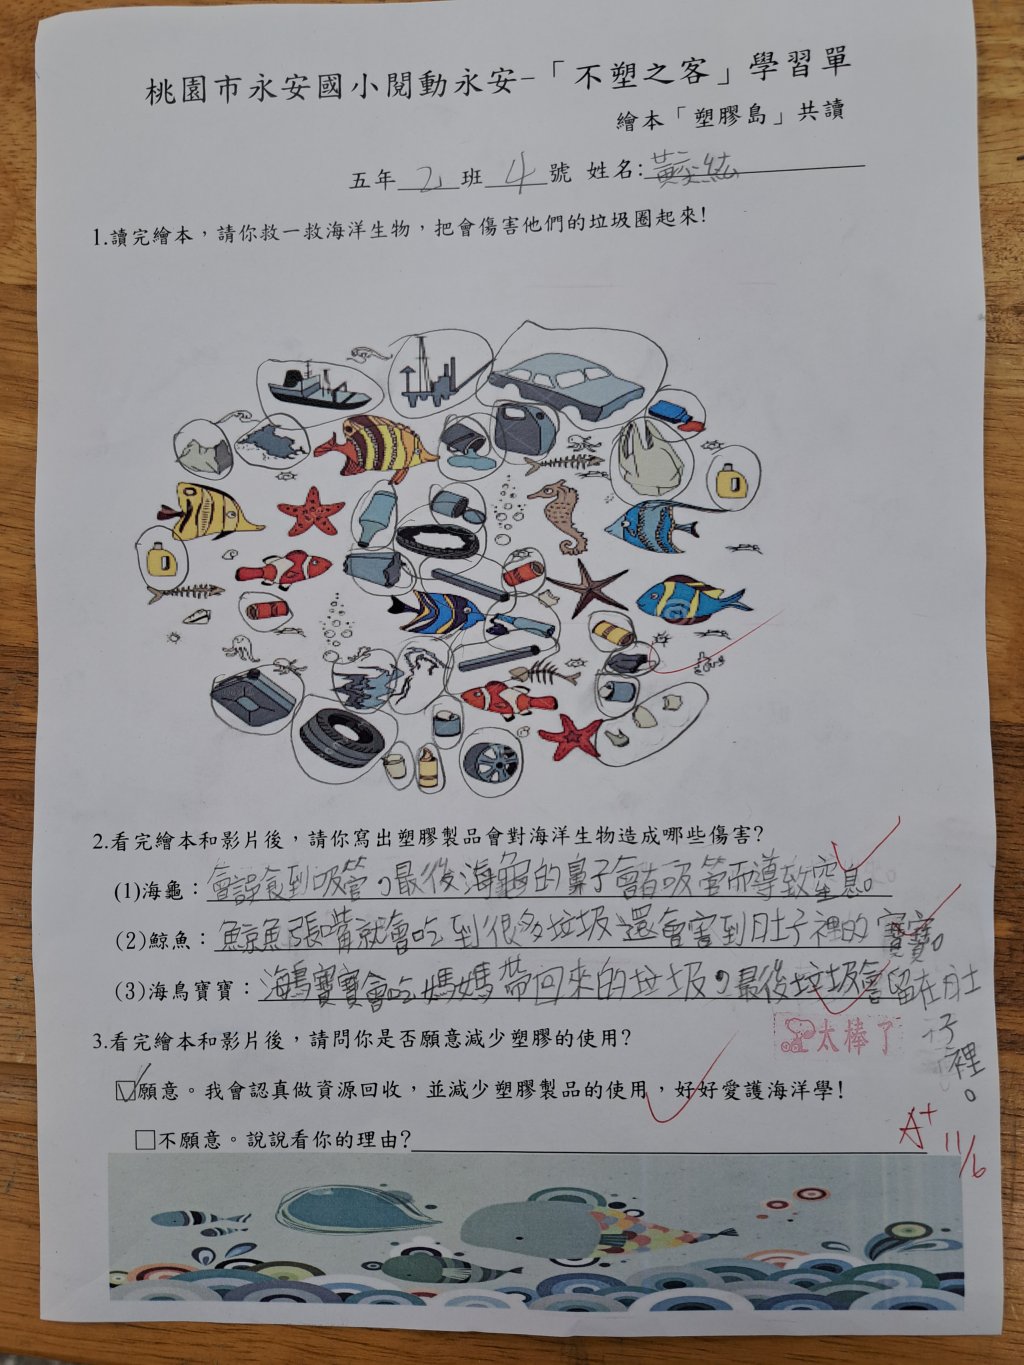 桃園市永安國小閱動永安-「不塑之客」學習單
繪本「塑膠島」共讀
五年 2 班 4 號 姓名: 黃
1.讀完繪本，請你救一救海洋生物，把會傷害他們的垃圾圈起來!
2.看完繪本和影片後，請你寫出塑膠製品會對海洋生物造成哪些傷害?
(1)海龜：會誤食到吸管，最後海龜的鼻子會因吸管而導致窒息。
(2)鯨魚：鯨魚張嘴就會吃到很多垃圾還會害到肚子裡的寶寶。
(3)海鳥寶寶：海鳥寶寶會吃媽媽帶回來的垃圾，最後垃圾會留在肚子裡。
太棒了
3.看完繪本和影片後，請問你是否願意減少塑膠的使用?
☑願意。我會認真做資源回收，並減少塑膠製品的使用，好好愛護海洋學!
□不願意。說說看你的理由?
A+ 11/6